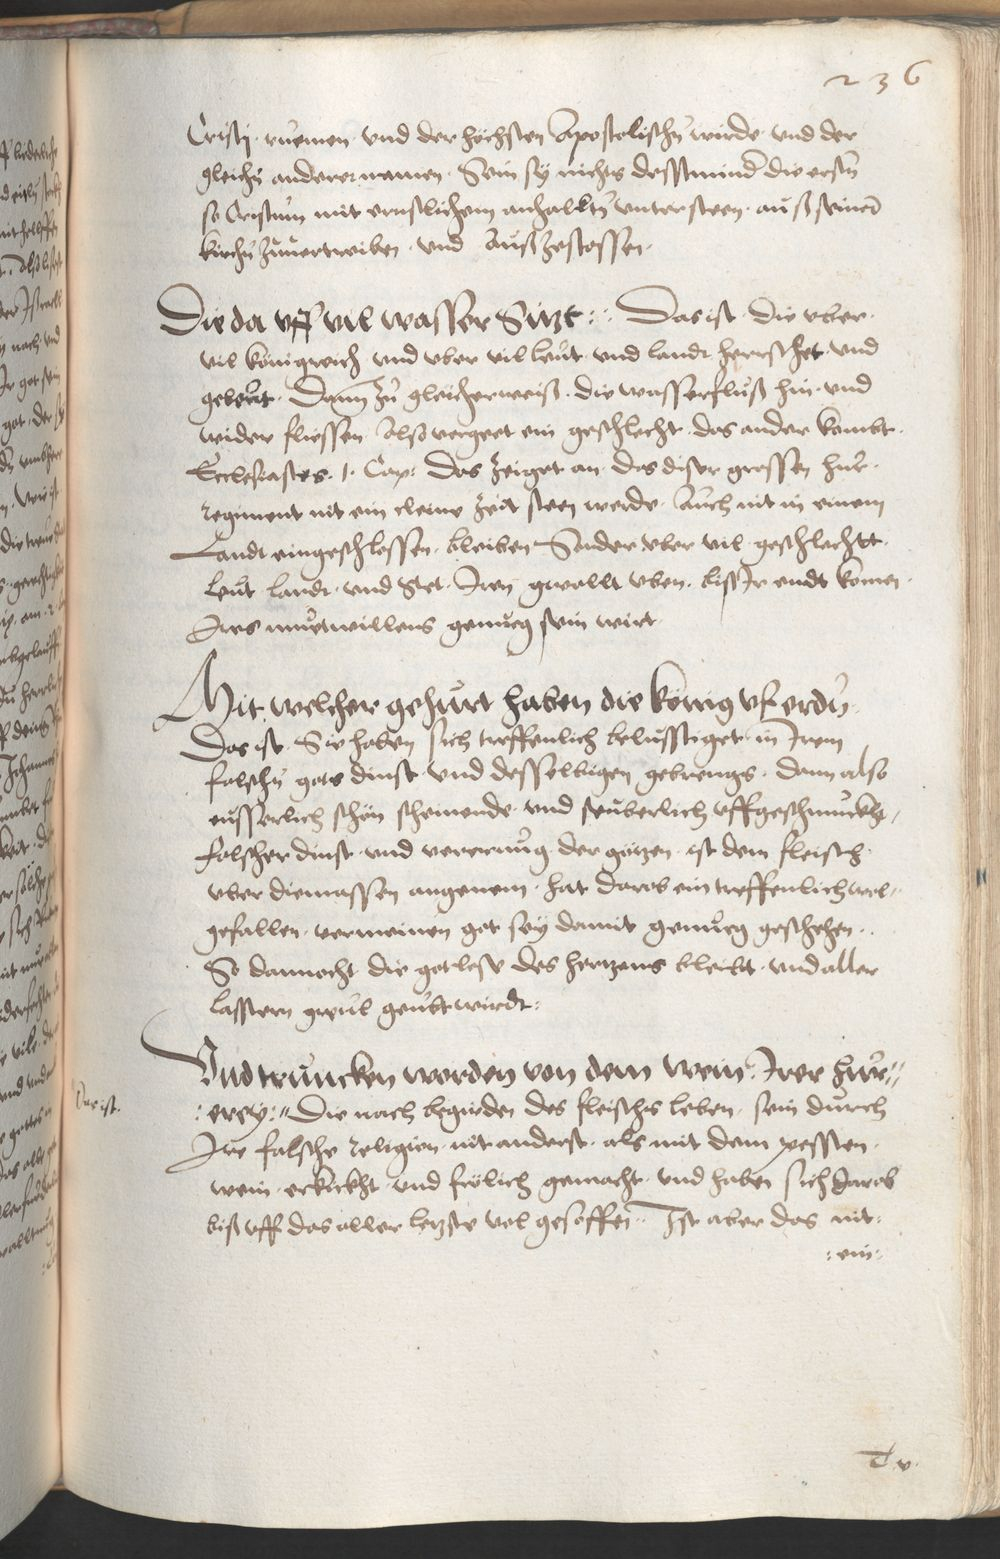 236
Cristi. ruemen. vnd der höchsten Apostolischn wirde. vnd der
gleichn anderer namen. Sein sy nichts desstminder die ersten
so Cristum mit ernstlichem anhalltn vntersteen. auß seiner
kirchn zuuertreiben. vnd Außzestossen.
Die da vff vil wasser Sitzt: Das ist. Die vber.
vil königreich. vnd vber vil leut. vnd landt herrschet. vnd
gebeut. Dann zu gleicherweiß. die wasserfluß hin. vnd
wider fliessen. Also vergeet ein geschlecht. das ander kombt.
Ecclesiastes. 1. Cap: Das zeiget an. das diser grossen hur.
regiment nit ein cleine zeit steen werde. Auch nit in einem
Landt eingeschlossen. bleiben Sonder vber vil geschlechtt.
leut landt. vnd Stet. Iren gwallt vben. biß Ir endt komen.
Ires mutwillens genueg sein wirt.
Mit welcher gehurt haben die könig vf erdn.
Das ist. Sie haben sich treffenlich belusstiget. in Irem
falschn gots dinst. vnd desselbigen gebrengs. dann also
eusserlich schön scheinende. vnd seuberlich vffgeschmuckht,
falscher dinst. vnd vererung der götzen. ist dem fleisch.
vber die massen angenem. hat darob ein treffenlich wol=
gefallen. vermeinen got sey damit genueg geschehen.
So dannocht die gotlose des hertzens bleibt. vnd aller
lasstern greul geubt wirdt:
Vnd truncken worden von dem wein. Irer hur=
:erey:= Die nach begirden des fleischs leben. sein durch
Das ist.
Ire falsche religion. nit anderst. als mit dem pessten.
wein. erkickht vnd frölich gemacht. vnd haben sich darob
biß vff das aller letzste vol gesoffen. Ist aber das nit:
:ein:
T v.